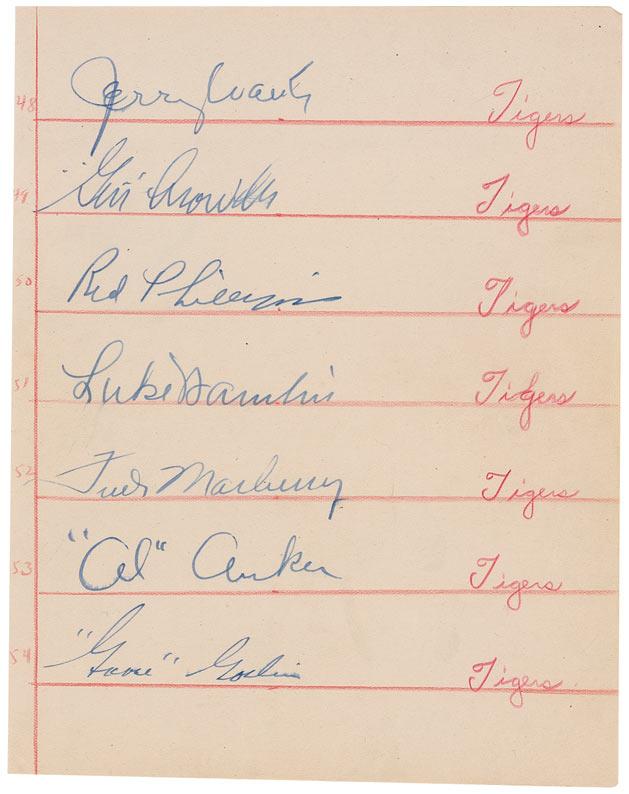 48 Jerry Walker Tigers
49 "Gen" Crowder Tigers
50 Red Phillips Tigers
51 Luke Hamlin Tigers
52 Fred Marberry Tigers
53 "Al" Auker Tigers
54 "Goose" Goslin Tigers